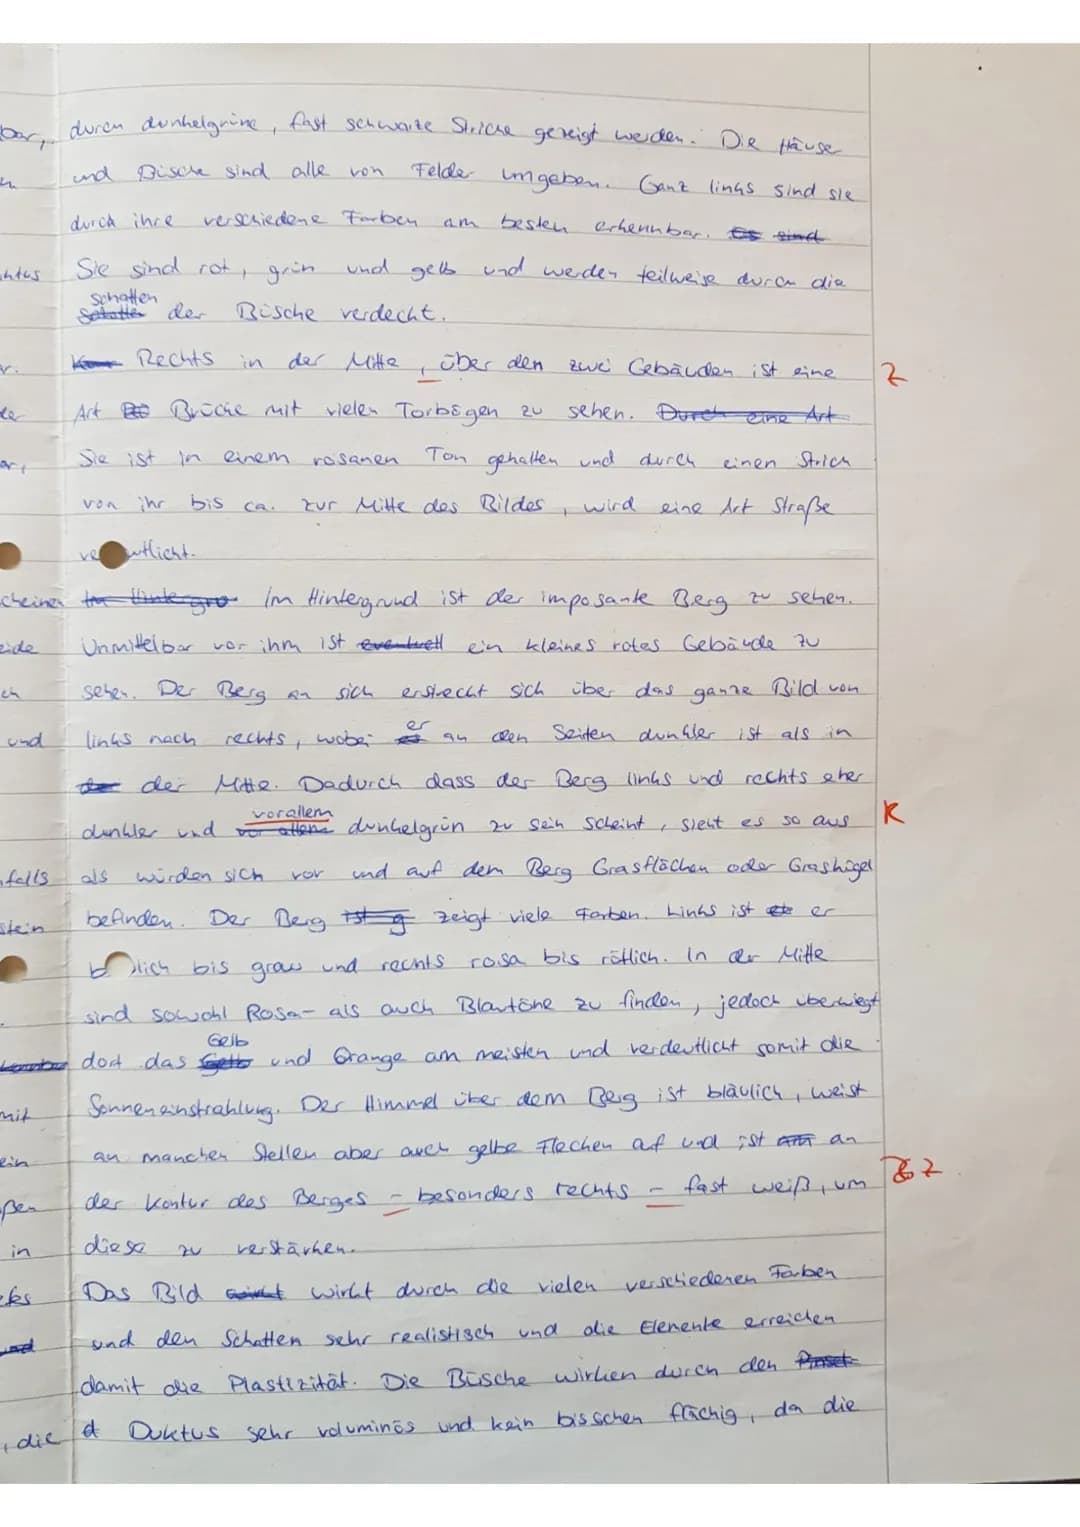 bar, durch dunkelgrüne, fast schwarze Striche gezeigt werden. Die Häuse
und Büsche sind alle von Felder umgeben. Ganz links sind sie
durch ihre verschiedene Farben am besten erkennbar. Es sind
Sie sind rot, grün und gelb und werden teilweise durch die
Schatten
der Büsche verdeckt.
Rechts in der Mitte, über den zwei Gebäuden ist eine Z
Art Brücke mit vielen Torbögen zu sehen. Durch eine Art
Sie ist in einem rosanen Ton gehalten und durch einen Strich
von ihr bis ca. zur Mitte des Bildes, wird eine Art Straße
ve utlicht.
cheinen Im Hintergro Im Hintergrund ist der imposante Berg zu sehen.
eide Unmittelbar vor ihm ist eventuell ein kleines rotes Gebäude zu
ch sehen. Der Berg an sich erstreckt sich über das ganze Bild von
er
und links nach rechts, wobei es an den Seiten dunkler ist als in
der der Mitte. Dadurch dass der Berg links und rechts eher
vorallem
dunkler und vor allem dunkelgrün zu sein scheint, sieht es so aus K
falls als würden sich vor und auf dem Berg Grasflächen oder Grashügel
stein befinden. Der Berg ist g zeigt viele Farben. Links ist er
b lich bis grau und rechts rosa bis rötlich. In der Mitte
sind sowohl Rosa- als auch Blautöne zu finden, jedoch überwiegt
Gelb
dort das Gelb und Orange am meisten und verdeutlicht somit die
mit Sonneneinstrahlung. Der Himmel über dem Berg ist bläulich, weist
ein an manchen Stellen aber auch gelbe Flechen auf und ist an
ßen der Kontur des Berges - besonders rechts - fast weiß, um Z
in diese zu verstärken.
Das Bild wirkt wirkt durch die vielen verschiedenen Farben
und und den Schatten sehr realistisch und die Elemente erreichen
damit die Plastizität. Die Büsche wirken durch den Pinsel
, die d Duktus sehr voluminös und kein bisschen flächig, da die